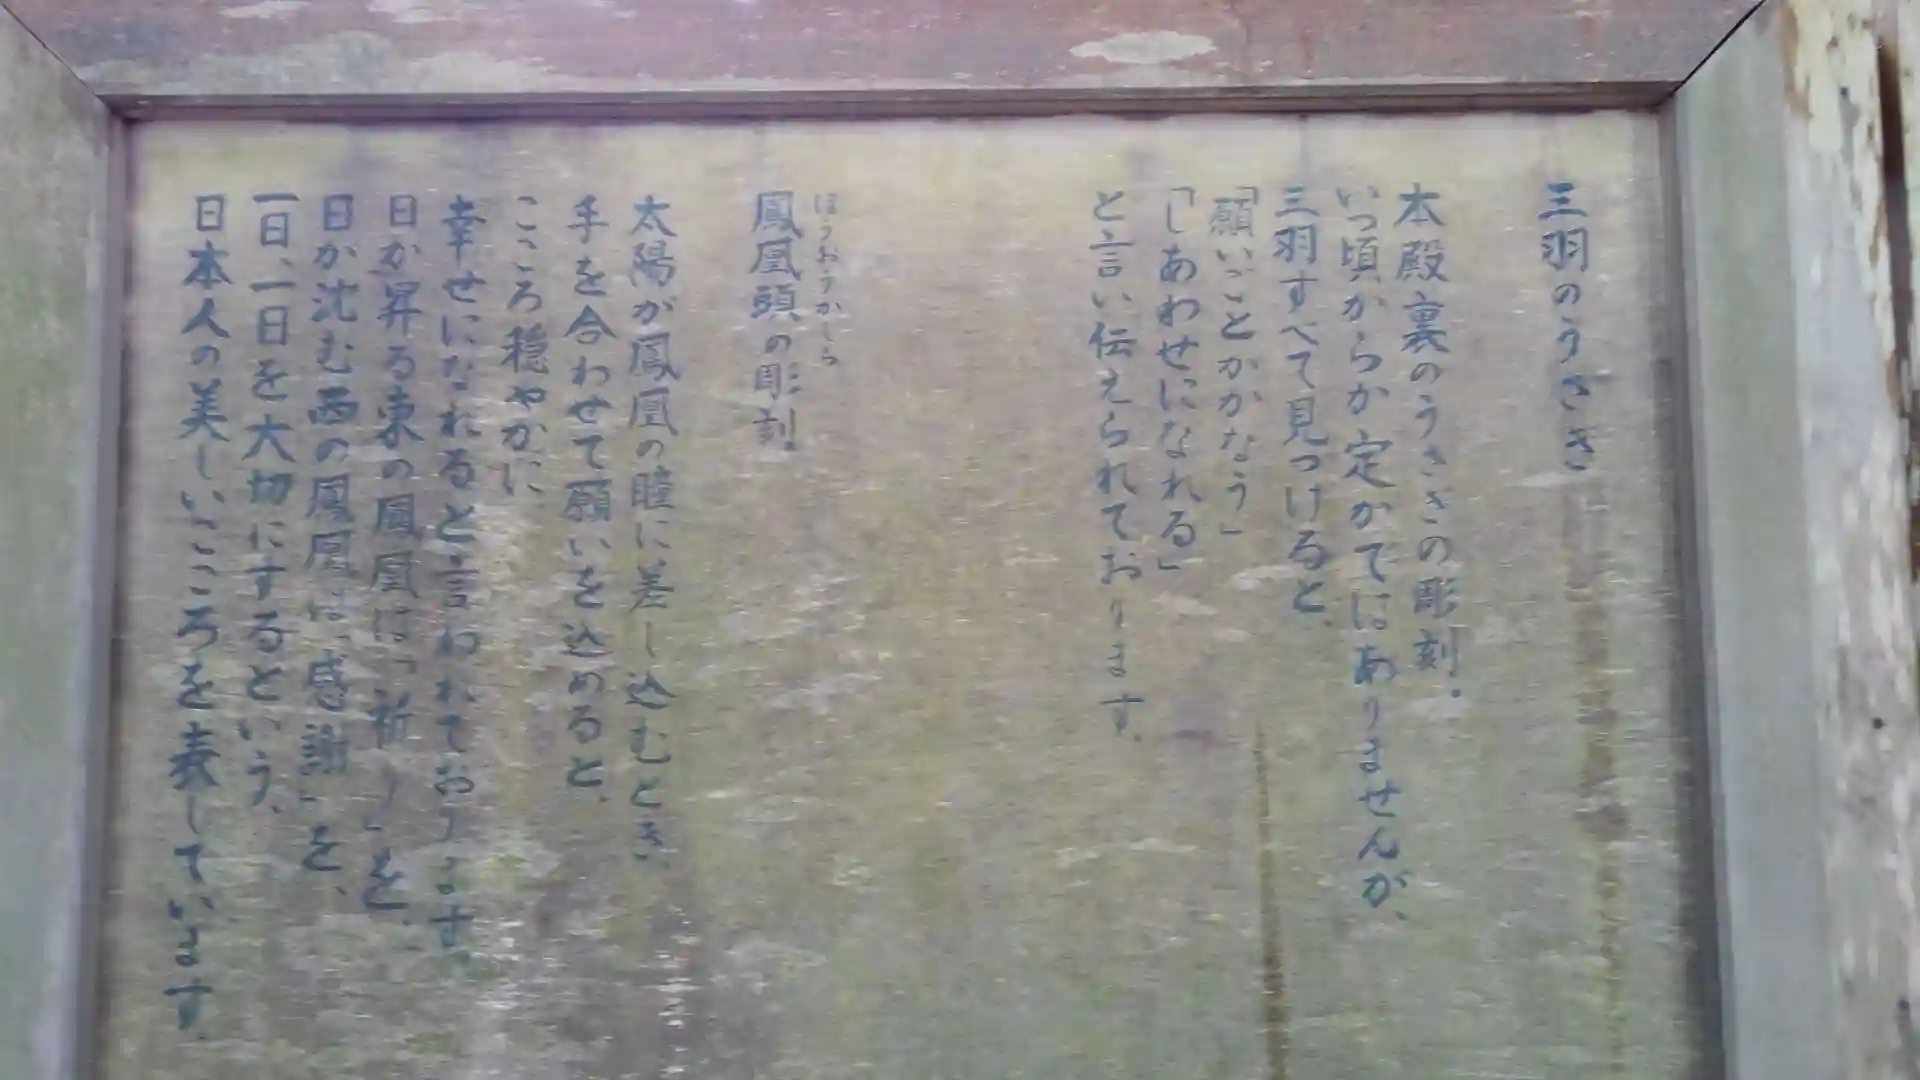 三羽のうさぎ
本殿裏のうさぎの彫刻。
いつ頃からか定かではありませんが、
三羽すべて見つけると、
「願いごとがかなう」
「しあわせになれる」
と言い伝えられております。
ほうおうかしら
鳳凰頭の彫刻
太陽が鳳凰の瞳に差し込むとき、
手を合わせて願いを込めると、
こころ穏やかに
幸せになれると言われております。
日が昇る東の鳳凰は「祈り」を、
日が沈む西の鳳凰は「感謝」を、
一日、一日を大切にするという、
日本人の美しいこころを表しています。